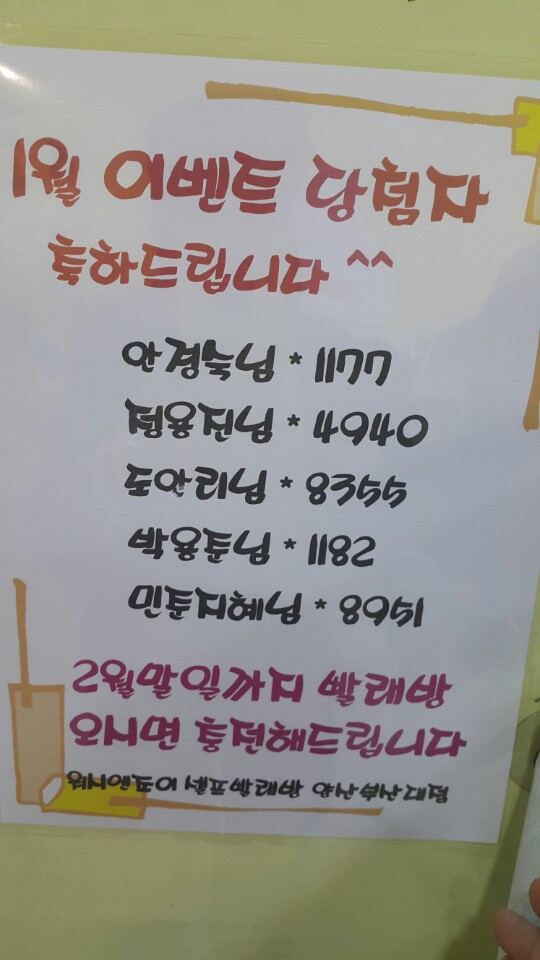 1월 이벤트 당첨자
축하드립니다 ^^
안경숙님 * 1177
정용진님 * 4940
도아리님 * 8355
박용훈님 * 1182
민훈지혜님 * 8951
2월말일까지 빨래방
오시면 충전해드립니다
워시앤조이 셀프빨래방 양산부산대점